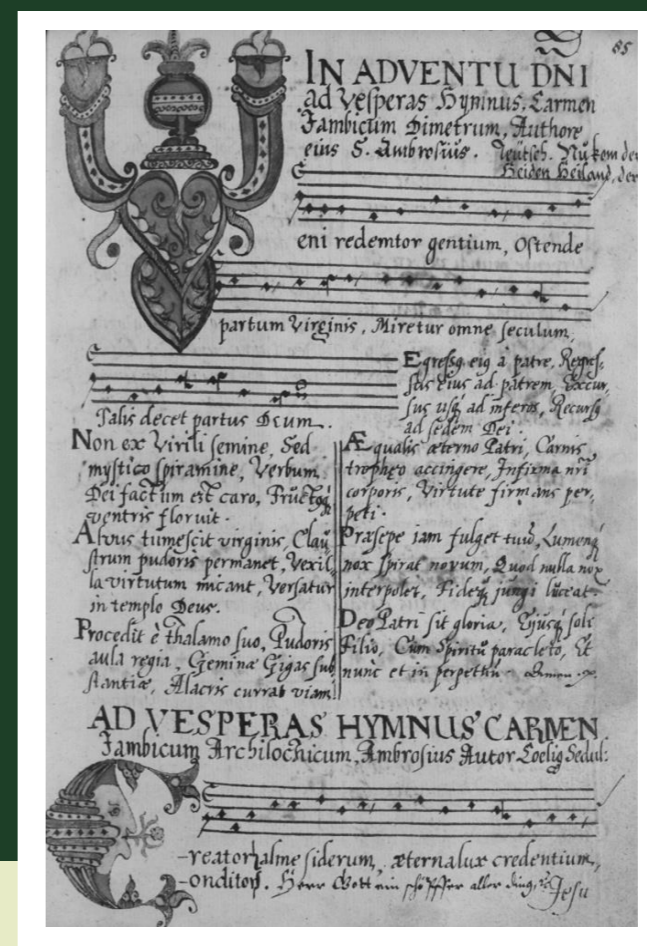 85
IN ADVENTU DNI
ad Vesperas Hymnus. Carmen
Jambicum Dimetrum, Authore
eius S. Ambrosius. Teütsch. Nu kom der
Heiden Heiland, der
eni redemtor gentium, Ostende
partum Virginis, Miretur omne seculum,
Talis decet partus Deum.
Non ex Virili semine, Sed
mystico spiramine, Verbum
Dei factum est caro, Fructq́;
ventris floruit.
Alvus tumescit virginis, Clau
strum pudoris permanet, Vexil
la virtutum micant, Versatur
in templo Deus.
Procedit è thalamo suo, Pudoris
aula regia, Geminæ Gigas sub
stantiæ, Alacris currat viam.
Egressq eiq à patre, Regres-
sus eius ad patrem, Excur-
sus usq́; ad inferos, Recursq
ad sedem Dei.
Æqualis æterno Patri, Carnis
tropheo accingere, Infirma nr̃i
corporis, Virtute firmans per,
peti.
Præsepe iam fulget tuũ, Lumenq́;
nox spirat novum, Quod nulla nox
interpolet, Fideq́; jungi luceat.
Deo Patri sit gloria, Ejusq́; soli
Filio, Cum Spiritu paracleto, Et
nunc et in perpetuũ. Amen.
AD VESPERAS HYMNUS CARMEN
Jambicum Archilochicum, Ambrosius Autor Coeliq Sedul:
C
-reator alme siderum, æterna lux credentium,
-onditor. Herr Gott ein schöpffer aller ding, Jesu